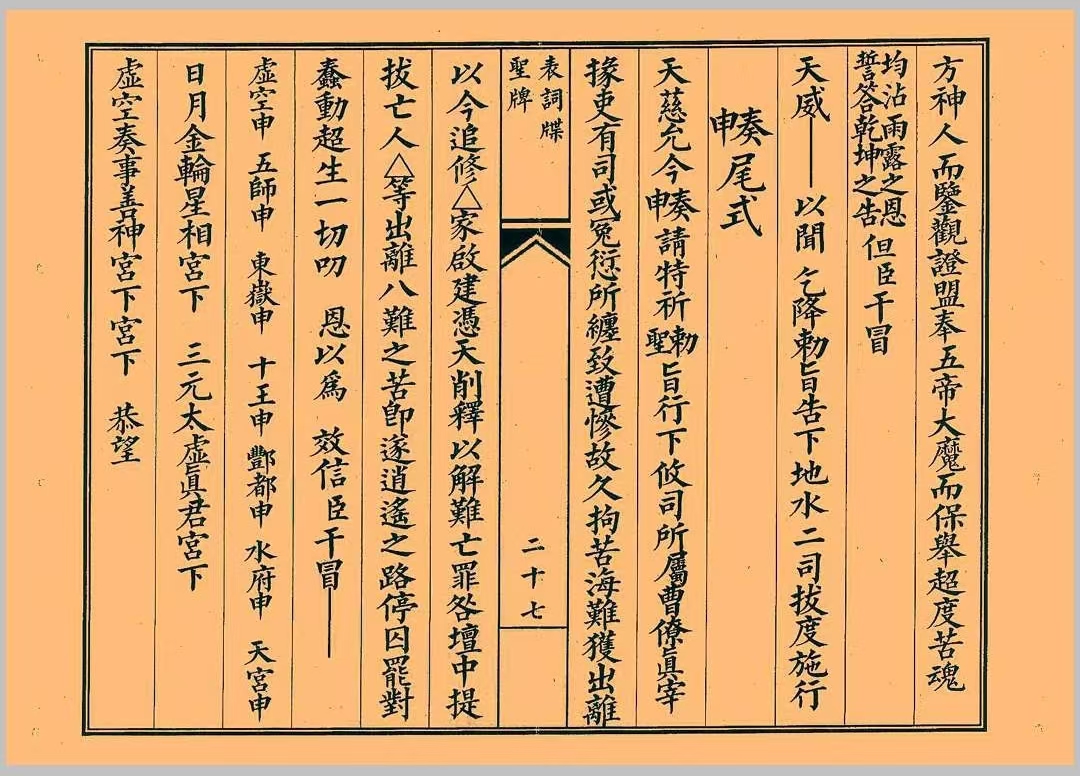 方神人而鑒觀證盟奉五帝大魔而保舉超度苦魂
均沾雨露之恩
誓答乾坤之告
但臣干冒
天威——以聞 乞降勅旨告下地水二司拔度施行
奏申尾式
天慈允今奏申請特祈勅聖旨行下攸司所屬曹僚眞宰
掾吏有司或冤愆所纏致遭慘故久拘苦海難獲出離
表詞牒
聖牌
二十七
以今追修△家啟建憑天削釋以解難亡罪咎壇中提
拔亡人△等出離八難之苦卽遂逍遙之路停囚罷對
蠢動超生一切叨 恩以爲 效信臣干冒——
虛空申 五師申 東嶽申 十王申 酆都申 水府申 天宮申
日月金輪星相宮下 三元太虛眞君宮下
虛空奏事善神宮下宮下 恭望